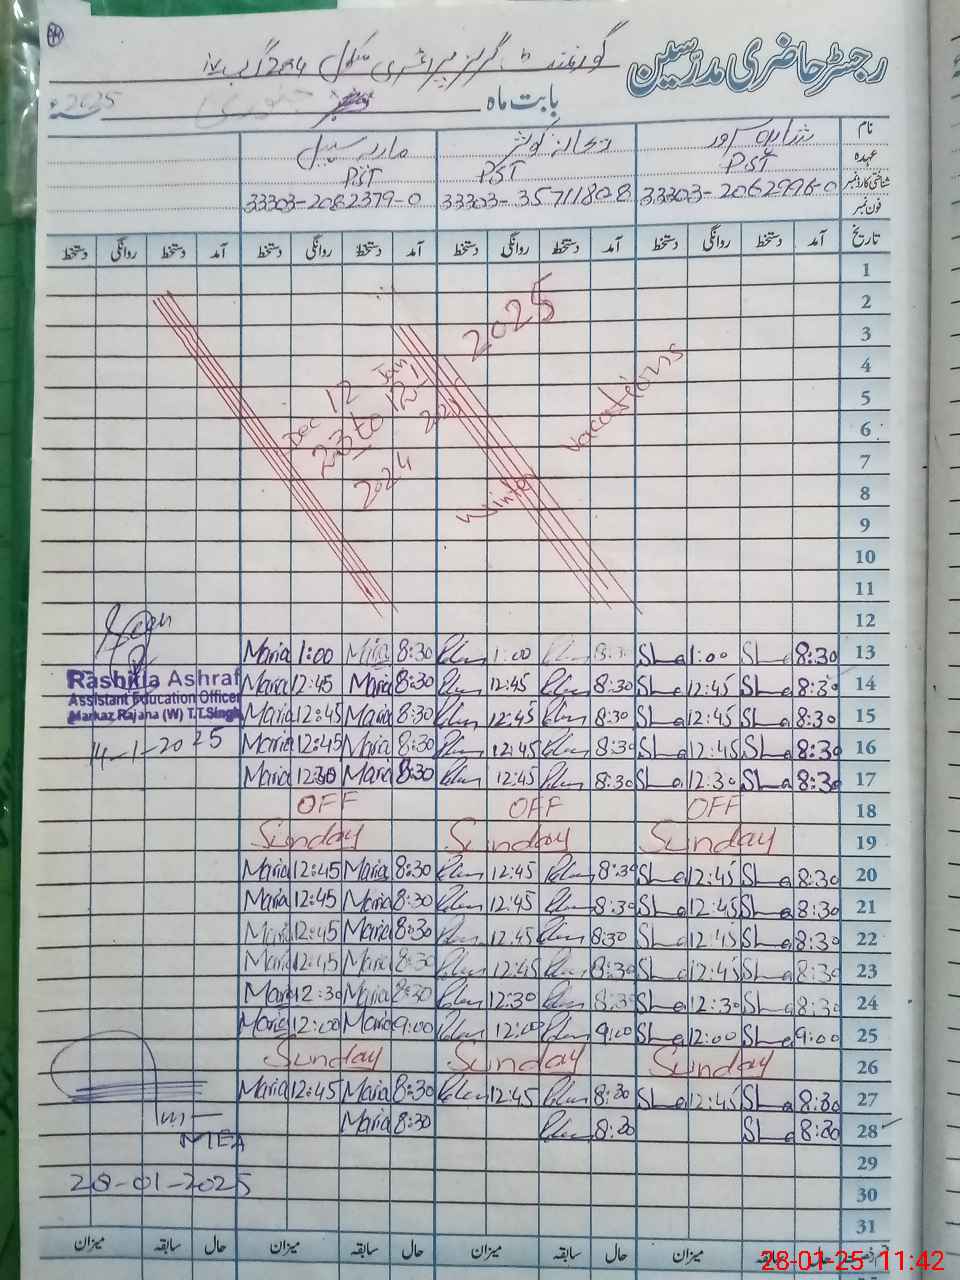 رجسٹر حاضری مدرسین
گورنمنٹ گرلز پرائمری سکول 284 گ ب
بابت ماہ جنوری 2025ء
نام
عہدہ PST PST PST
شناختی کارڈ نمبر 33303-2062996-0 33303-35711808 33303-2082379-0
فون نمبر
تاریخ آمد دستخط روانگی دستخط آمد دستخط روانگی دستخط آمد دستخط روانگی دستخط آمد دستخط روانگی دستخط
1
2
3
4
5
6
7
8
9
10
11
12
2025
Winter Vacations
Dec 23 to Jan 12
2024
Maria 1:00 Maria 8:30 1:00 8:30 Sha 1:00 Sha 8:30 13
Maria 12:45 Maria 8:30 12:45 8:30 Sha 12:45 Sha 8:30 14
Maria 12:45 Maria 8:30 12:45 8:30 Sha 12:45 Sha 8:30 15
Maria 12:45 Maria 8:30 12:45 8:30 Sha 12:45 Sha 8:30 16
Maria 12:30 Maria 8:30 12:45 8:30 Sha 12:30 Sha 8:30 17
OFF OFF OFF 18
Sunday Sunday Sunday 19
Maria 12:45 Maria 8:30 12:45 8:30 Sha 12:45 Sha 8:30 20
Maria 12:45 Maria 8:30 12:45 8:30 Sha 12:45 Sha 8:30 21
Maria 12:45 Maria 8:30 12:45 8:30 Sha 12:45 Sha 8:30 22
Maria 12:45 Maria 8:30 12:45 8:30 Sha 12:45 Sha 8:30 23
Maria 12:30 Maria 8:30 12:30 8:30 Sha 12:30 Sha 8:30 24
Maria 12:00 Maria 9:00 12:00 9:00 Sha 12:00 Sha 9:00 25
Sunday Sunday Sunday 26
Maria 12:45 Maria 8:30 12:45 8:30 Sha 12:45 Sha 8:30 27
Maria 8:30 8:30 Sha 8:30 28
29
30
31
Rashida Ashraf
Assistant Education Officer
Markaz Rajana (W) T.T.Singh
14-1-2025
MEA
28-01-2025
حال سابقہ میزان حال سابقہ میزان حال سابقہ میزان حال سابقہ میزان
28-01-25 11:42